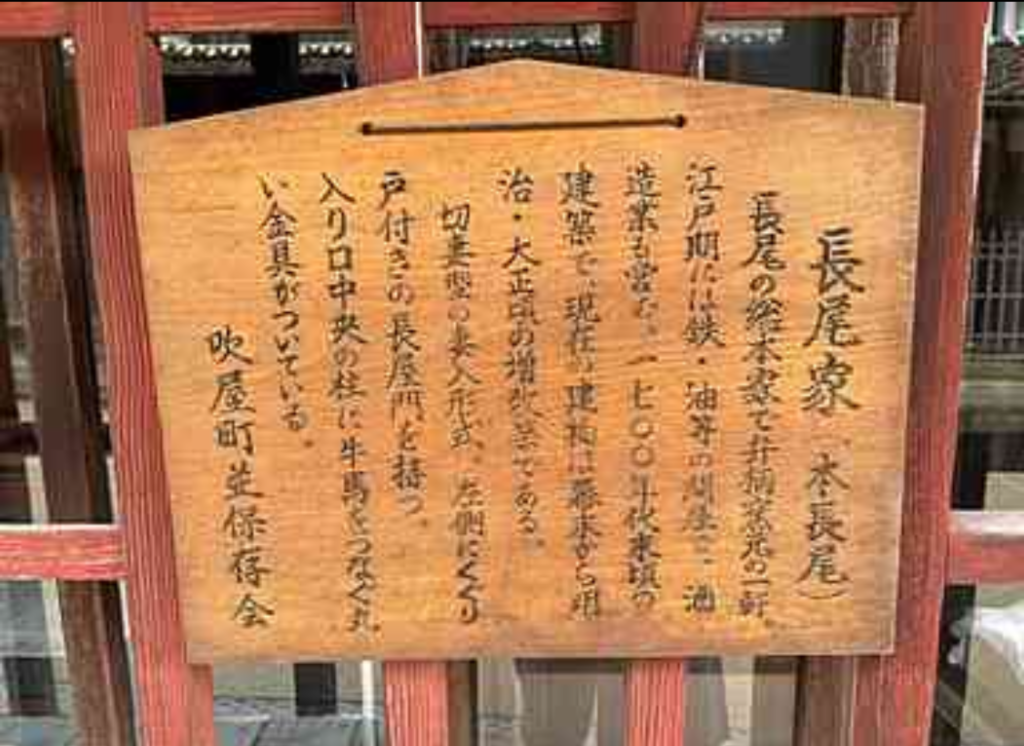 長尾家（本長尾）
長尾の総本家で弁柄窯元の一軒。
江戸期には鉄・油等の問屋と、酒
造業も営む。一七〇〇年代末頃の
建築で、現在の建物は幕末から明
治・大正頃の増改築である。
切妻型の妻入形式、左側にくぐり
戸付きの長屋門を持つ。
入り口中央の柱に牛馬をつなぐ丸
い金具がついている。
吹屋町並保存会